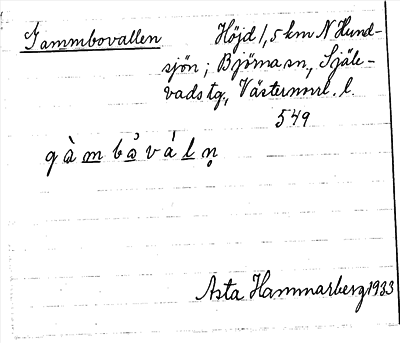 Gammbovallen Höjd 1,5 km N Hund-
sjön; Björna sn, Själe-
vads tg, Västernrrl. l.
549
gàmbåváln̥
Asta Hammarberg 1933